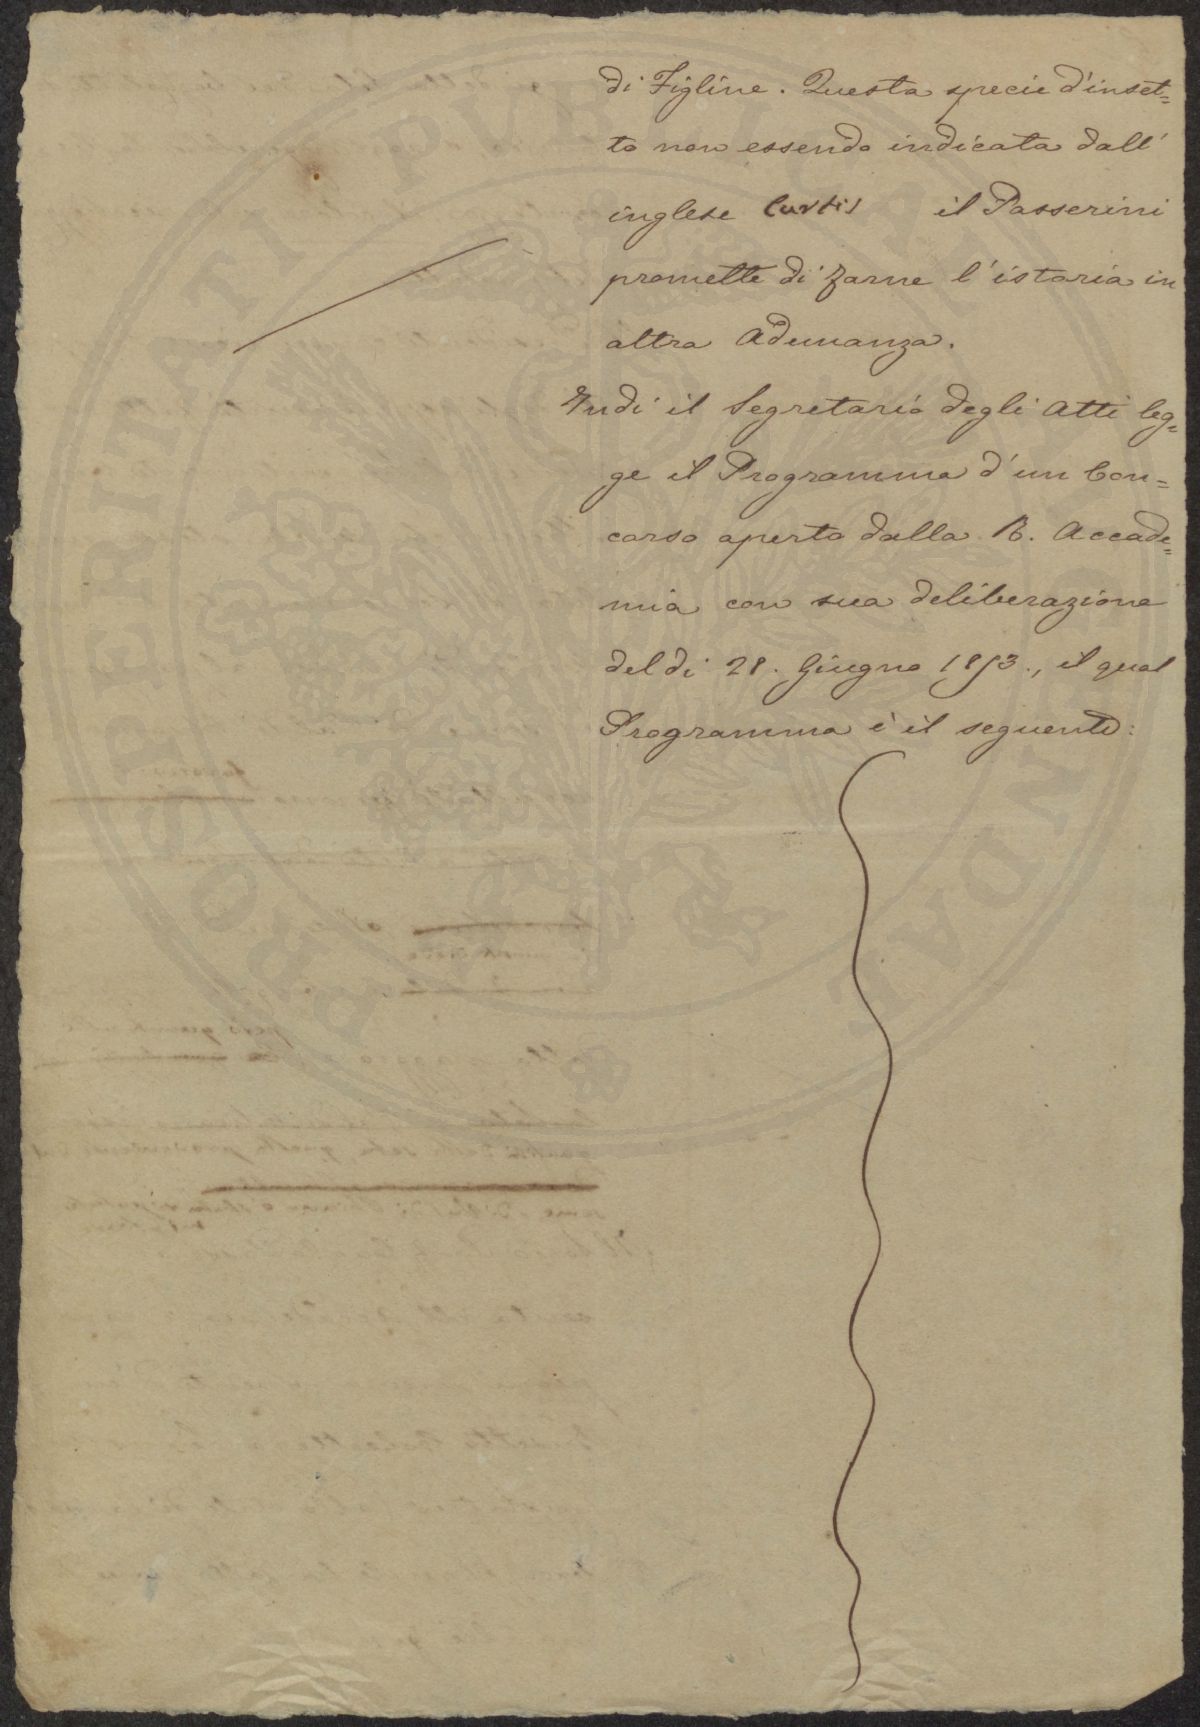 di Figline. Questa specie d'inset=
to non essendo indicata dall'
inglese Curtis il Passerini
promette di farne l'istoria in
altra Adunanza.
Indi il Segretario degli Atti leg=
ge il Programma d'un Con=
corso aperto dalla R. Accade=
mia con sua deliberazione
del di 28. Giugno 1853., il qual
Programma è il seguente:
PROSPERITATI PVBLICAE AVGENDAE